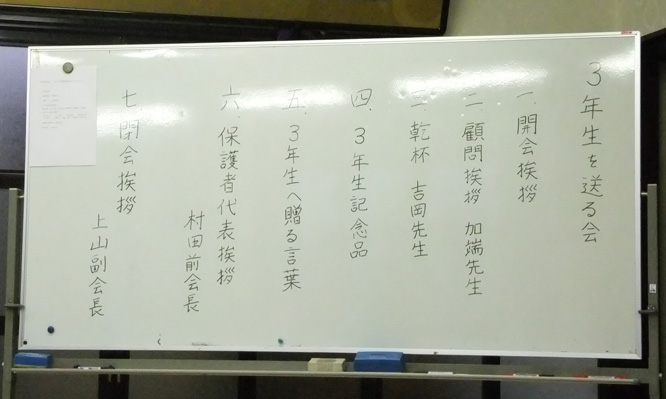 3年生を送る会
一、開会挨拶
二、顧問挨拶 加端先生
三、乾杯 吉岡先生
四、3年生記念品
五、3年生へ贈る言葉
六、保護者代表挨拶
村田前会長
七、閉会挨拶
上山副会長